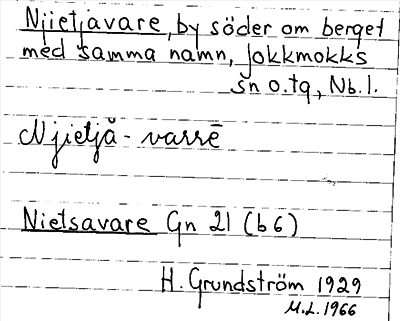 Njietjavare, by söder om berget
med samma namn, Jokkmokks
sn o. tg, Nb. l.
Njietjă-varrē
Nietsavare Gn 21 (b6)
H. Grundström 1929
M.L. 1966